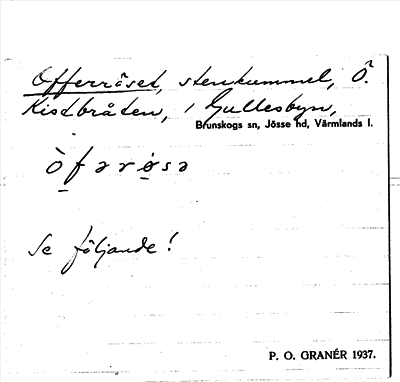 Offerröset, stenkummel, Ö.
Kistbråten, i Gullesbyn,
Brunskogs sn, Jösse hd, Värmlands l.
òfərø̀sə
Se följande!
P. O. GRANÉR 1937.